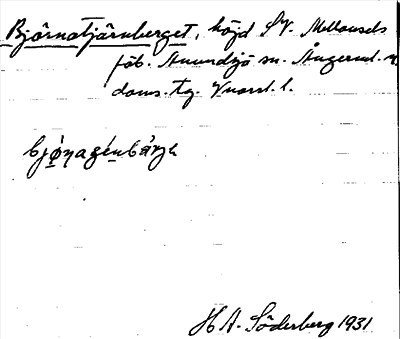 Björnatjärnberget, höjd S.V. Mellansels
föb. Anundsjö sn. Ångerml. n.
doms. tg. Vnorrl. l.
bjọ̀ṇagénbàrjə
H A. Söderberg 1931